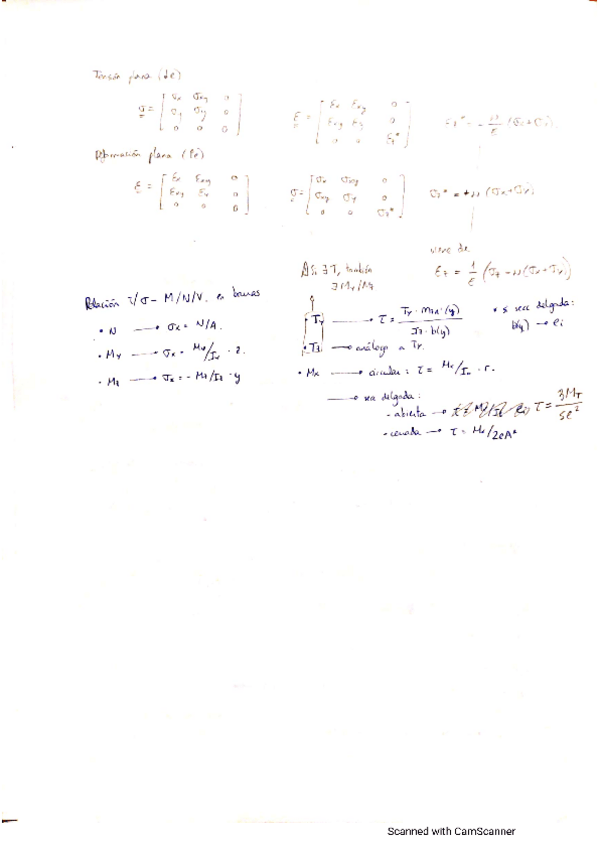 Tensión plana (de)
σ = [ σx σxy 0
σy σy 0
0 0 0 ]
ε = [ εx εxy 0
εxy εy 0
0 0 εz* ]
εz* = - ν/E (σx+σy)
Deformación plana (Pε)
ε = [ εx εxy 0
εxy εy 0
0 0 0 ]
σ = [ σx σxy 0
σxy σy 0
0 0 σz* ]
σz* = +ν (σx+σy)
viene de
εz = 1/E (σz - ν(σx+σy))
Si ∃ T, también
∃ My/Mz
Relación τ/σ - M/N/V. en barras
• N → σx = N/A.
• My → σx = My/Iy · z.
• Mz → σx = - Mz/Iz · y
• Ty → τ = Ty · mza·(y) / Iz · b(y)
• si sec delgada:
b(y) → ei
• Tz → análogo a Ty.
• Mx → circular: τ = Mx/Io · r.
→ sec delgada:
- abierta → τ = 3MT / se²
- cerrada → τ = Mx/2eA*
Scanned with CamScanner